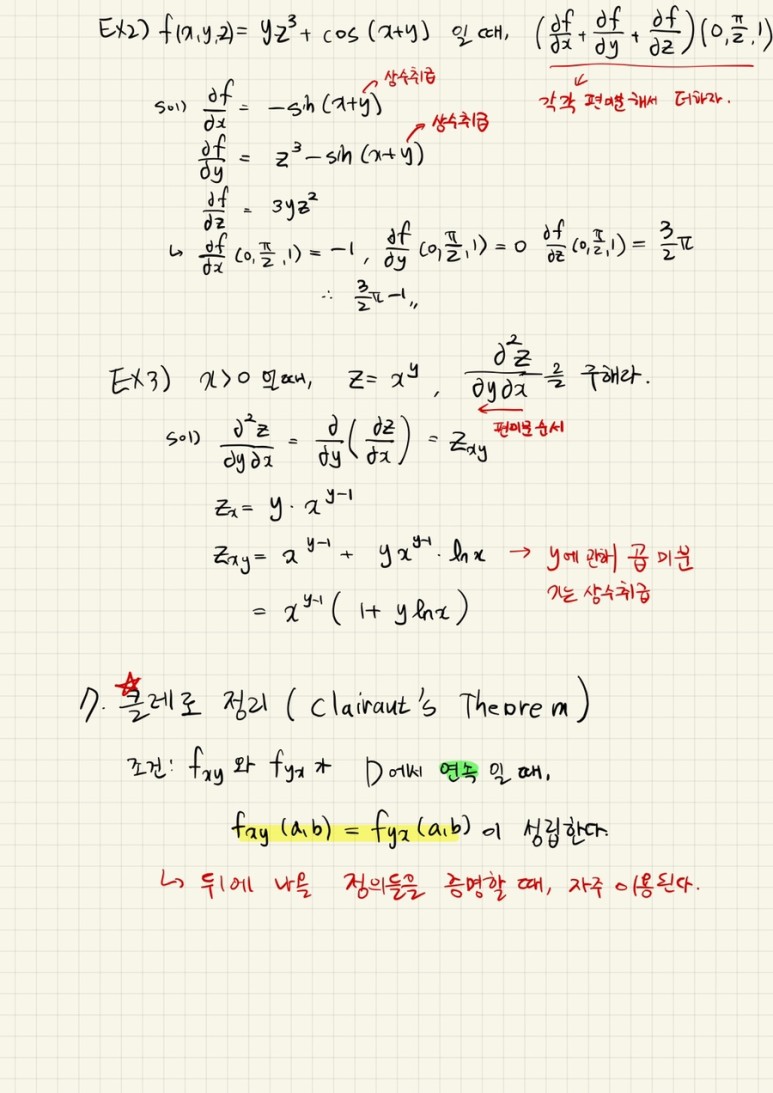 Ex2) f(x,y,z) = yz³ + cos (x+y) 일 때, (∂f/∂x + ∂f/∂y + ∂f/∂z)(0, π/2, 1)
각각 편미분해서 더하라.
상수취급
sol) ∂f/∂x = -sin (x+y)
상수취급
∂f/∂y = z³ - sin (x+y)
∂f/∂z = 3yz²
↳ ∂f/∂x (0, π/2, 1) = -1, ∂f/∂y (0, π/2, 1) = 0 ∂f/∂z (0, π/2, 1) = 3/2 π
∴ 3/2 π - 1 〃
Ex3) x>0 일 때, z = x^y, ∂²z/∂y∂x 를 구해라.
편미분 순서
sol) ∂²z/∂y∂x = ∂/∂y (∂z/∂x) = z_xy
z_x = y · x^(y-1)
z_xy = x^(y-1) + yx^(y-1) · ln x → y에 관해 곱 미분
x는 상수취급
= x^(y-1) ( 1 + y ln x )
7. 클레로 정리 ( Clairaut's Theorem )
조건: f_xy 와 f_yx 가 D에서 연속 일 때,
f_xy (a,b) = f_yx (a,b) 이 성립한다.
↳ 뒤에 나올 정의들을 증명할 때, 자주 이용된다.